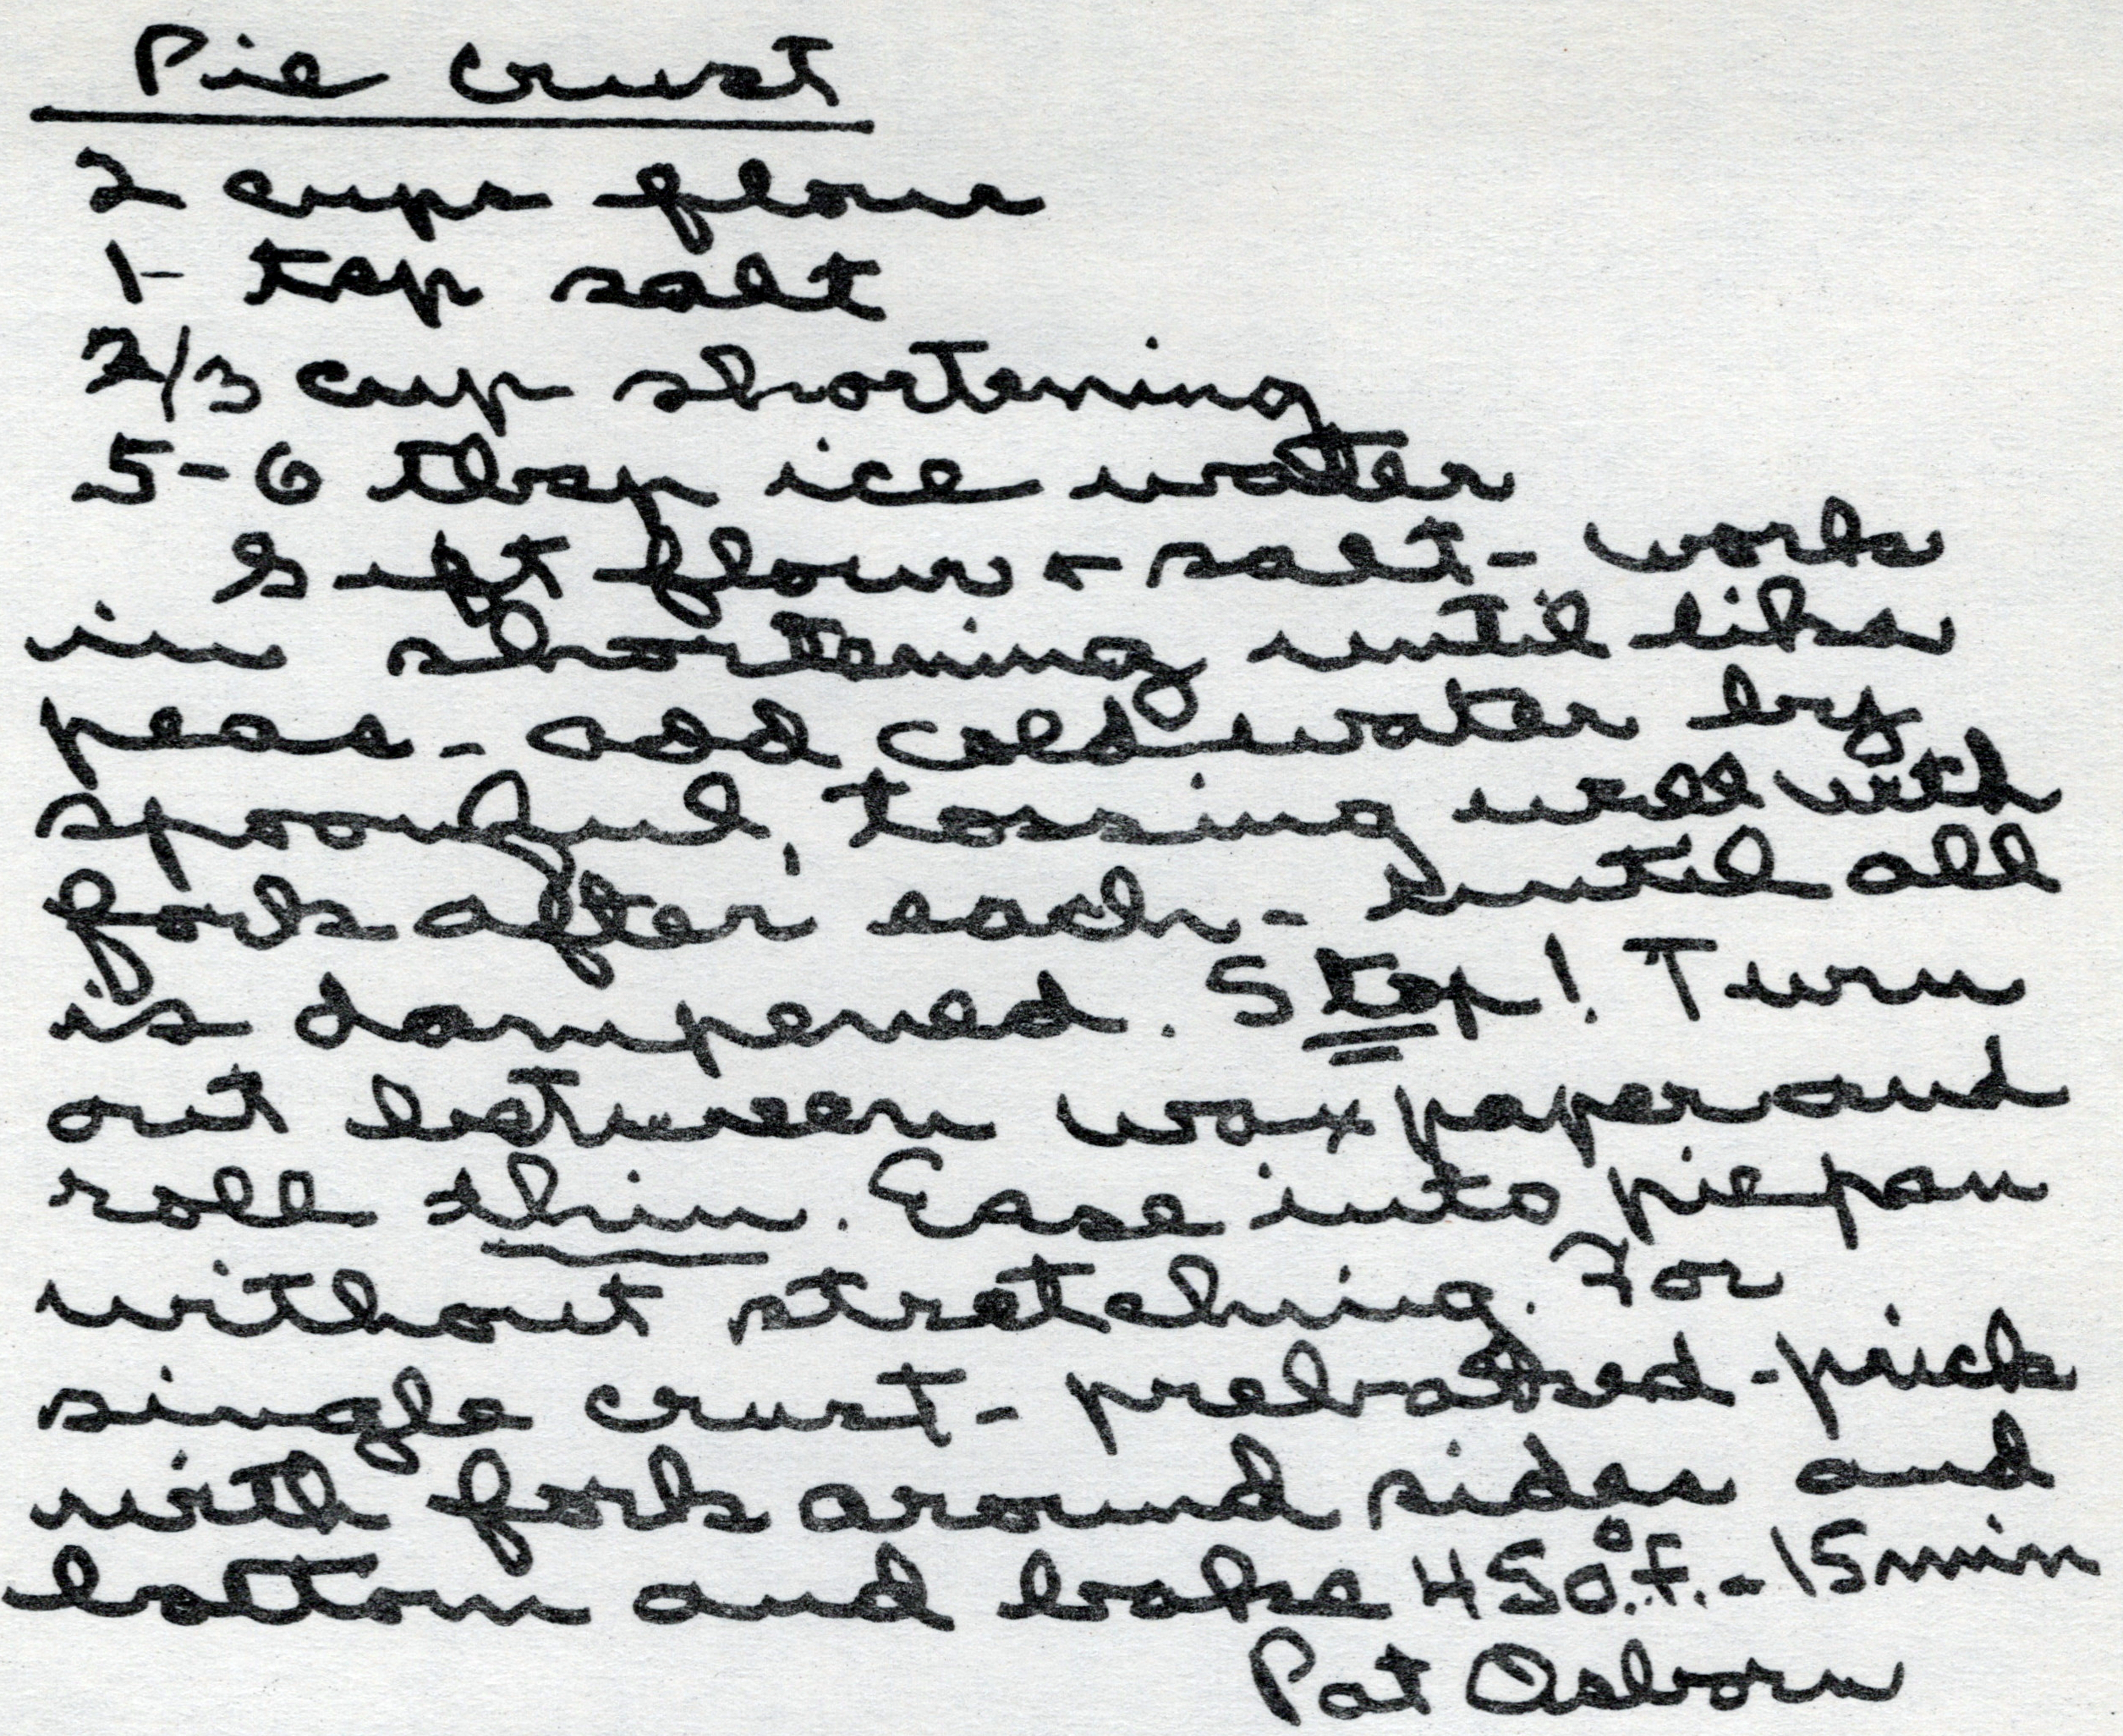 Pie Crust
2 cups flour
1- tsp salt
2/3 cup shortening
5-6 tbsp ice water
Sift flour + salt - work
in shortening until like
peas - add cold water by
spoonful, tossing well with
fork after each - until all
is dampened. Stop! Turn
out between wax paper and
roll thin. Ease into pie pan
without stretching. For
single crust - prebaked - prick
with fork around sides and
bottom and bake 450° F. - 15 min
Pat Osborn